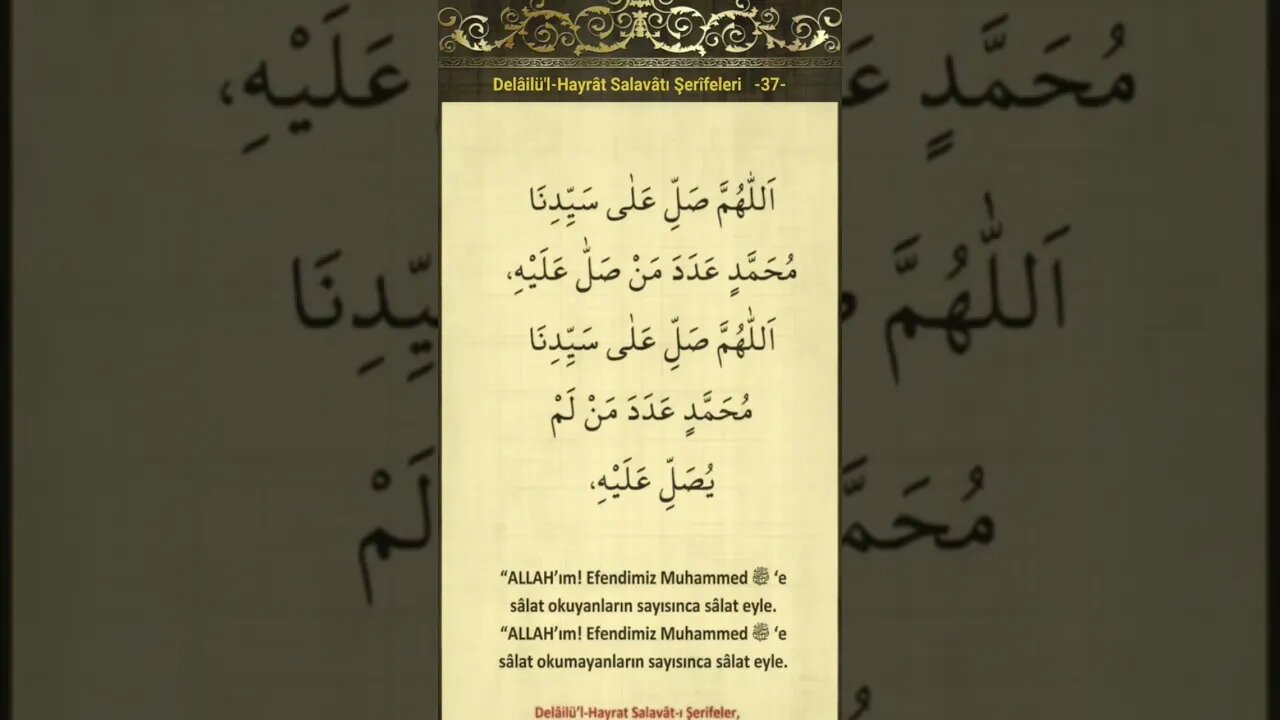 Delâilü'l-Hayrât Salavâtı Şerîfeleri -37-
اَللّٰهُمَّ صَلِّ عَلٰى سَيِّدِنَا
مُحَمَّدٍ عَدَدَ مَنْ صَلّٰ عَلَيْهِ،
اَللّٰهُمَّ صَلِّ عَلٰى سَيِّدِنَا
مُحَمَّدٍ عَدَدَ مَنْ لَمْ
يُصَلِّ عَلَيْهِ،
“ALLAH’ım! Efendimiz Muhammed ﷺ ‘e
sâlat okuyanların sayısınca sâlat eyle.
“ALLAH’ım! Efendimiz Muhammed ﷺ ‘e
sâlat okumayanların sayısınca sâlat eyle.
Delâilü’l-Hayrat Salavât-ı Şerifeler,